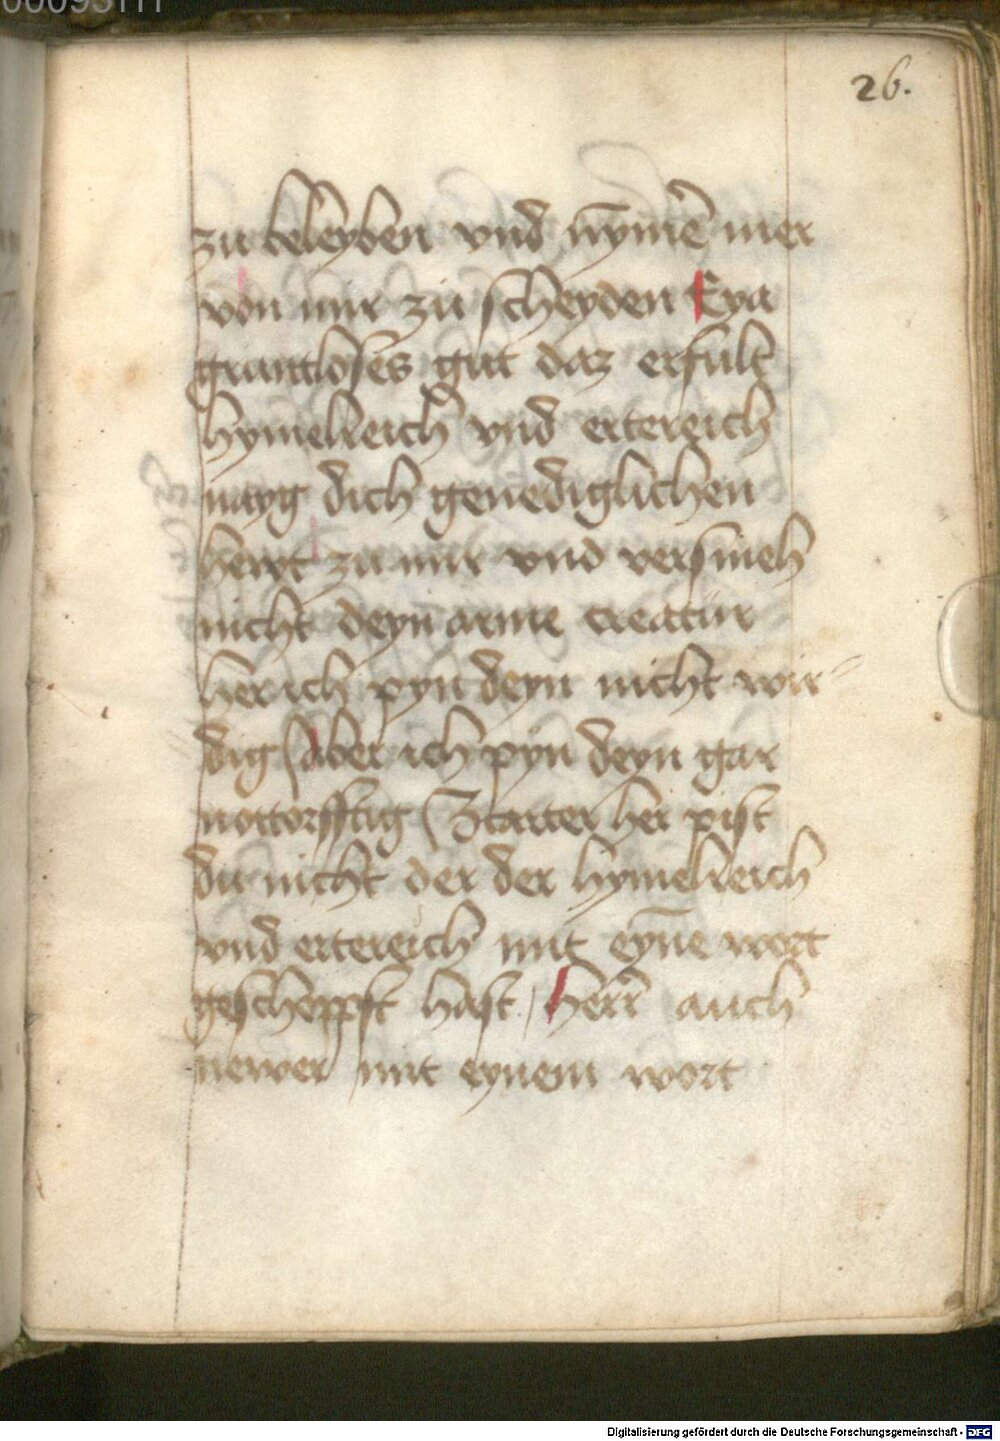 00093111
26.
zu beleyben vnd nȳmer mer
von mir zu scheyden Eya
gruntloses gut daz erfult
hymelreich vnd ertereich
nayg dich genediglichen
hewt zu mir vnd versmeh
nicht deyn arme creatur
her ich pyn deyn nicht wir
dig Aber ich pyn deyn gar
nottorfftig Zcarter her pist
du nicht der der hymelreich
vnd ertereich mit eyne wort
gescheppft hast / herr auch
newer mit eynem wort
Digitalisierung gefördert durch die Deutsche Forschungsgemeinschaft - DFG